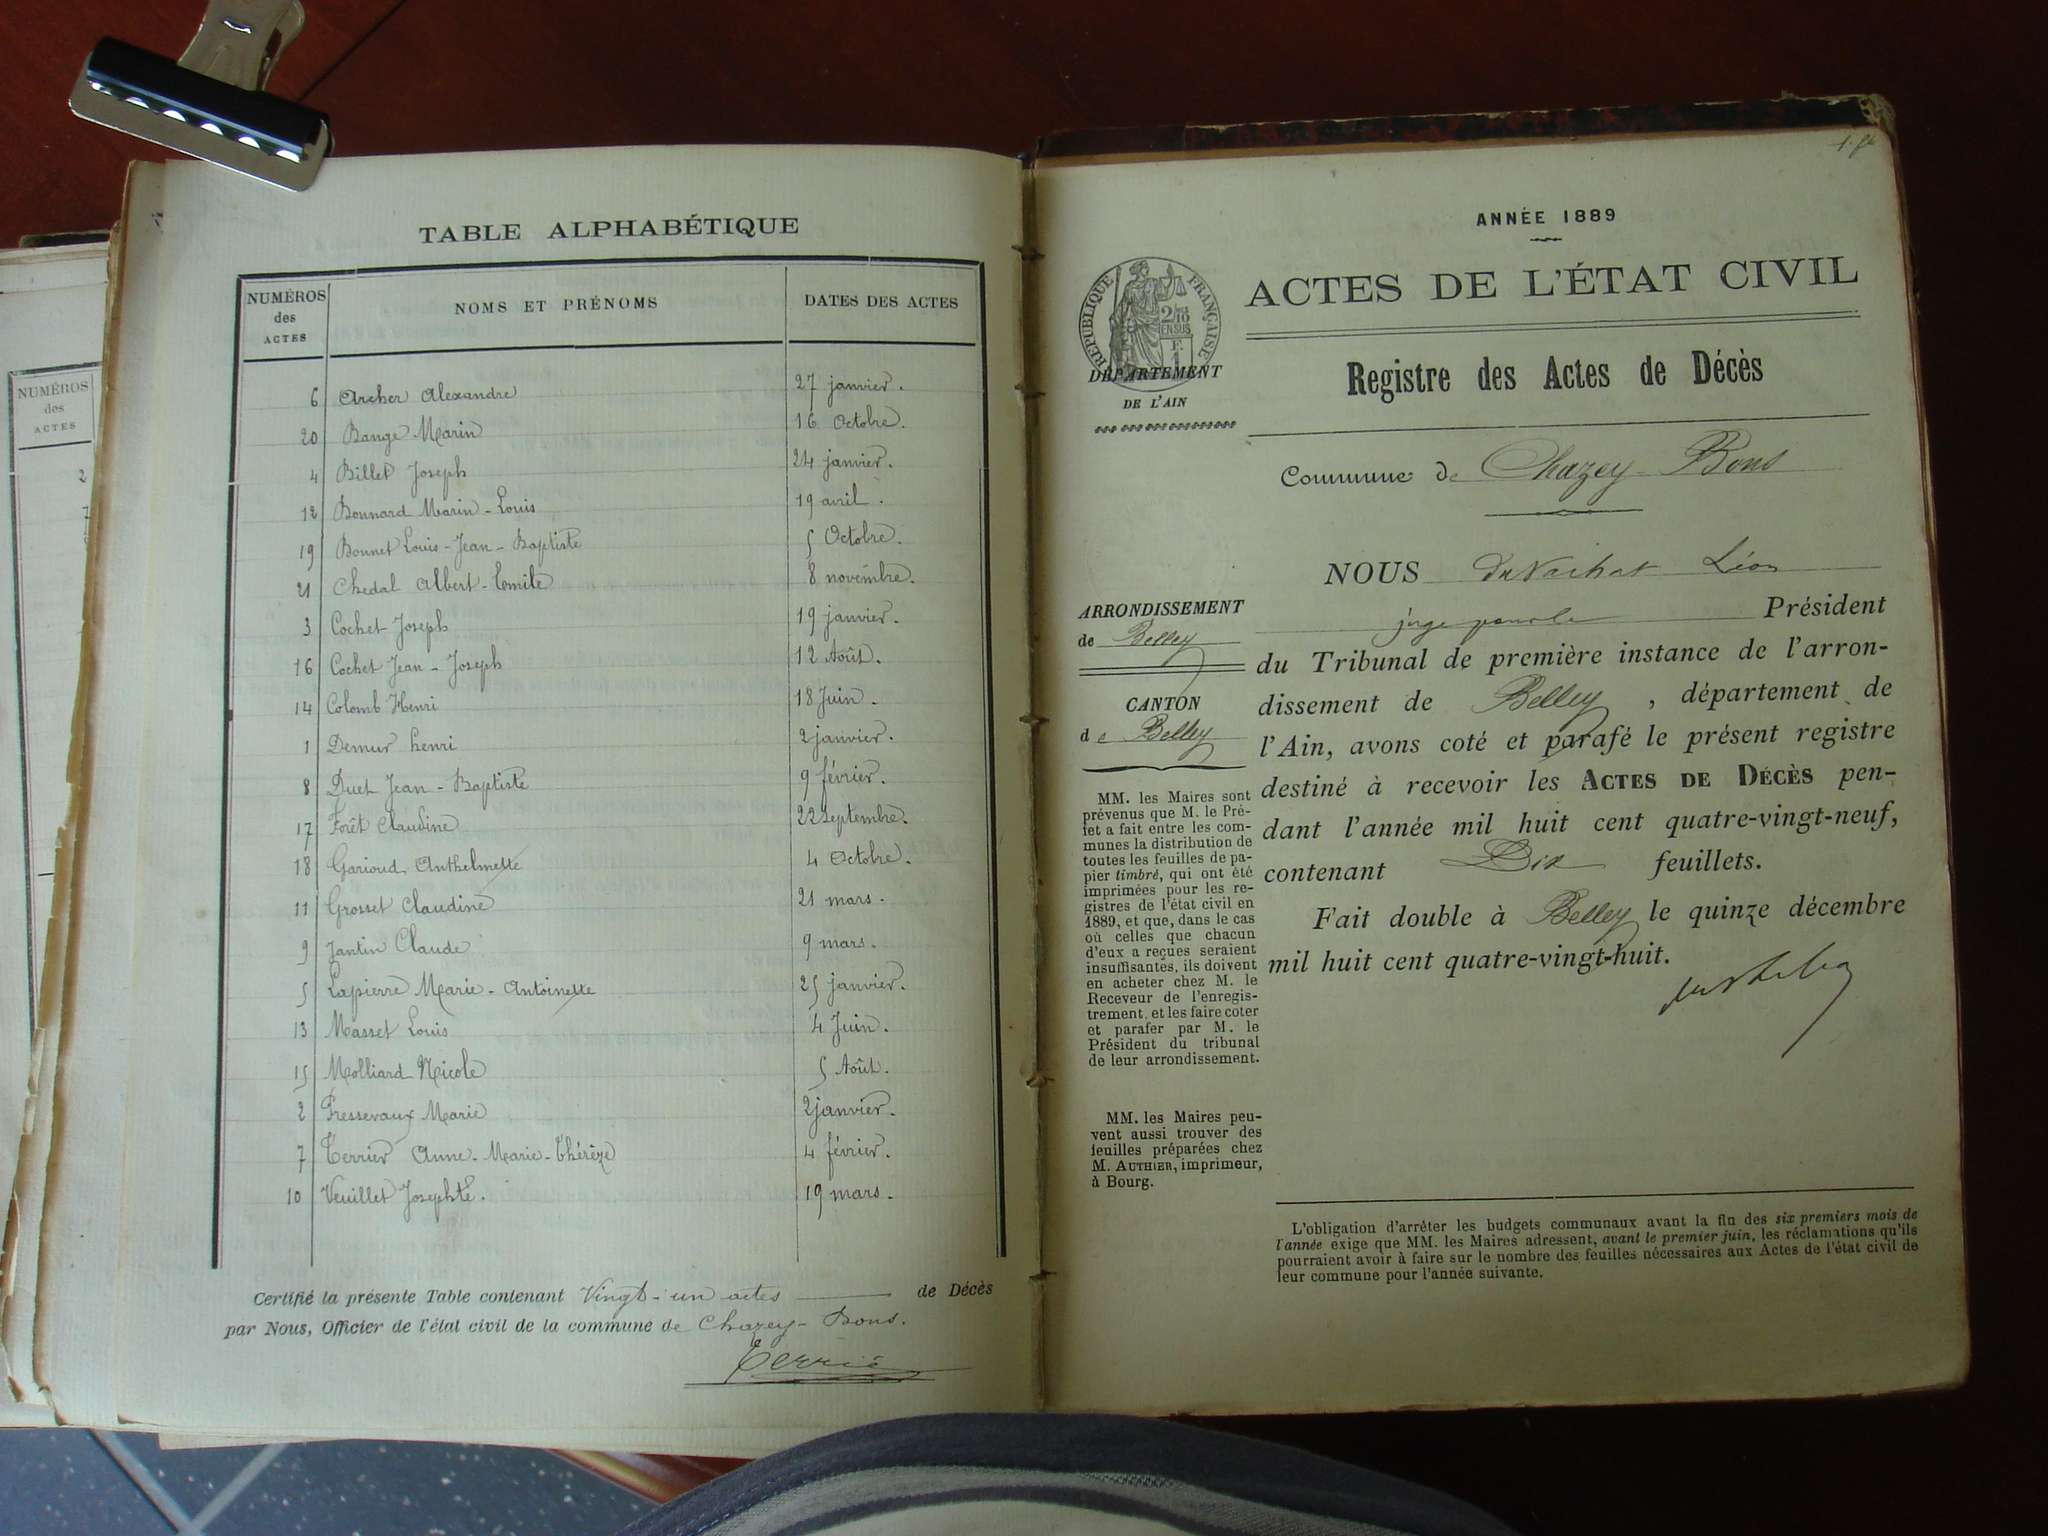 NUMÉROS
des
ACTES
2
7
TABLE ALPHABÉTIQUE
NUMÉROS des ACTES NOMS ET PRÉNOMS DATES DES ACTES
6 Archer Alexandre 27 janvier.
20 Bange Marin 16 Octobre.
4 Billet Joseph 24 janvier.
12 Bonnard Marin-Louis 19 avril.
19 Bonnet Louis-Jean-Baptiste 5 Octobre.
21 Chedal Albert-Emile 8 novembre.
3 Cochet Joseph 19 janvier.
16 Cochet Jean-Joseph 12 Août.
14 Colomb Henri 18 Juin.
1 Demur henri 2 janvier.
8 Duet Jean-Baptiste 9 février.
17 Forêt Claudine 22 Septembre.
18 Garioud Anthelmette 4 Octobre.
11 Grosset Claudine 21 mars.
9 Jantin Claude 9 mars.
5 Lapierre Marie-Antoinette 25 janvier.
13 Masset Louis 4 Juin.
15 Molliard Nicole 5 Août.
2 Pressevaux Marie 2 janvier.
7 Terrier Anne-Marie-Thérèze 4 février.
10 Veuillet Josephte. 19 mars.
Certifié la présente Table contenant Vingt-un actes de Décès
par Nous, Officier de l'état civil de la commune de Chazey-Bons.
ANNÉE 1889
RÉPUBLIQUE FRANÇAISE
2/10
EN SUS
ACTES DE L'ÉTAT CIVIL
DÉPARTEMENT
DE L'AIN
Registre des Actes de Décès
Commune de Chazey-Bons
ARRONDISSEMENT
de Belley
CANTON
de Belley
MM. les Maires sont
prévenus que M. le Pré-
fet a fait entre les com-
munes la distribution de
toutes les feuilles de pa-
pier timbré, qui ont été
imprimées pour les re-
gistres de l'état civil en
1889, et que, dans le cas
où celles que chacun
d'eux a reçues seraient
insuffisantes, ils doivent
en acheter chez M. le
Receveur de l'enregis-
trement, et les faire coter
et parafer par M. le
Président du tribunal
de leur arrondissement.
MM. les Maires peu-
vent aussi trouver des
feuilles préparées chez
M. AUTHIER, imprimeur,
à Bourg.
NOUS du Vachat Léon
juge Président
du Tribunal de première instance de l'arron-
dissement de Belley, département de
l'Ain, avons coté et parafé le présent registre
destiné à recevoir les ACTES DE DÉCÈS pen-
dant l'année mil huit cent quatre-vingt-neuf,
contenant Dix feuillets.
Fait double à Belley le quinze décembre
mil huit cent quatre-vingt-huit.
L'obligation d'arrêter les budgets communaux avant la fin des six premiers mois de
l'année exige que MM. les Maires adressent, avant le premier juin, les réclamations qu'ils
pourraient avoir à faire sur le nombre des feuilles nécessaires aux Actes de l'état civil de
leur commune pour l'année suivante.